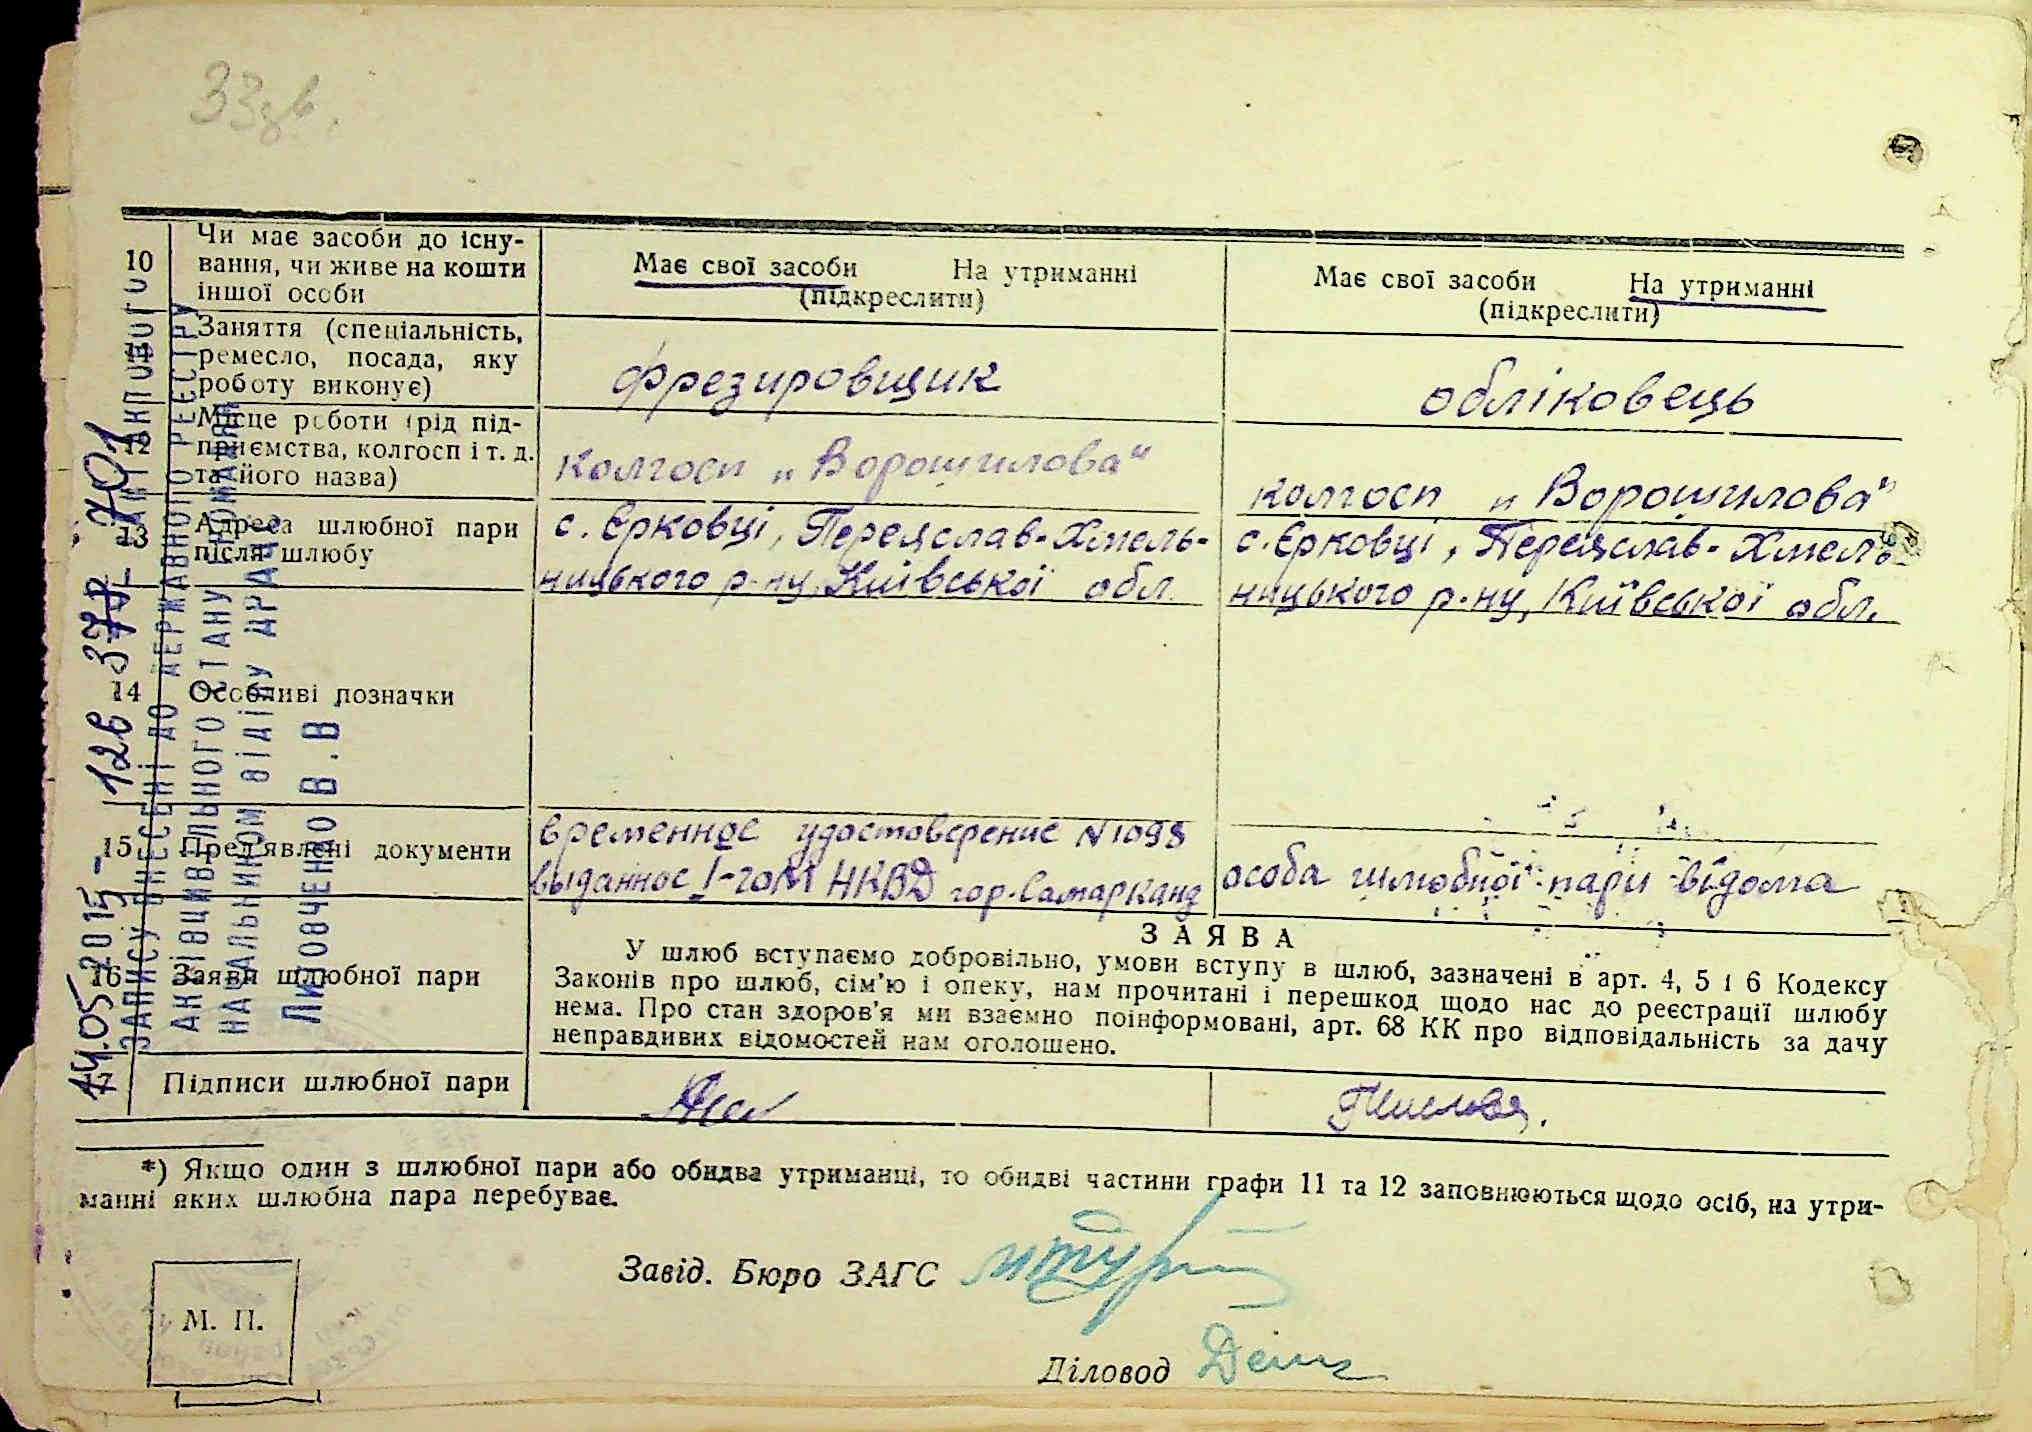 33зв.
10 Чи має засоби до існу-
вання, чи живе на кошти
іншої особи
Має свої засоби На утриманні
(підкреслити)
Має свої засоби На утриманні
(підкреслити)
11 Заняття (спеціальність,
ремесло, посада, яку
роботу виконує)
фрезировщик
обліковець
12 Місце роботи (рід під-
приємства, колгосп і т. д.
та його назва)
колгосп „Ворошилова"
колгосп „Ворошилова"
13 Адреса шлюбної пари
після шлюбу
с. Єрковці, Переяслав-Хмель-
ницького р-ну, Київської обл.
с. Єрковці, Переяслав-Хмель
ницького р-ну, Київської обл.
14 Особливі позначки
15 Пред'явлені документи
временное удостоверение N 1098
выданное 1-гоМ НКВД гор. Самарканд
особа шлюбної пари відома
16 Заяви шлюбної пари
ЗАЯВА
У шлюб вступаємо добровільно, умови вступу в шлюб, зазначені в арт. 4, 5 і 6 Кодексу
Законів про шлюб, сім'ю і опеку, нам прочитані і перешкод щодо нас до реєстрації шлюбу
нема. Про стан здоров'я ми взаємно поінформовані, арт. 68 КК про відповідальність за дачу
неправдивих відомостей нам оголошено.
17 Підписи шлюбної пари
*) Якщо один з шлюбної пари або обидва утриманці, то обидві частини графи 11 та 12 заповнюються щодо осіб, на утри-
манні яких шлюбна пара перебуває.
Завід. Бюро ЗАГС
Діловод
М. П.
14.05 2015-
ЗАПИСИ ВНЕСЕНІ ДО ДЕРЖАВНОГО РЕЄСТРУ
АКТІВ ЦИВІЛЬНОГО СТАНУ ГРОМАДЯН
НАЧАЛЬНИКОМ ВІДДІЛУ ДРАЦС